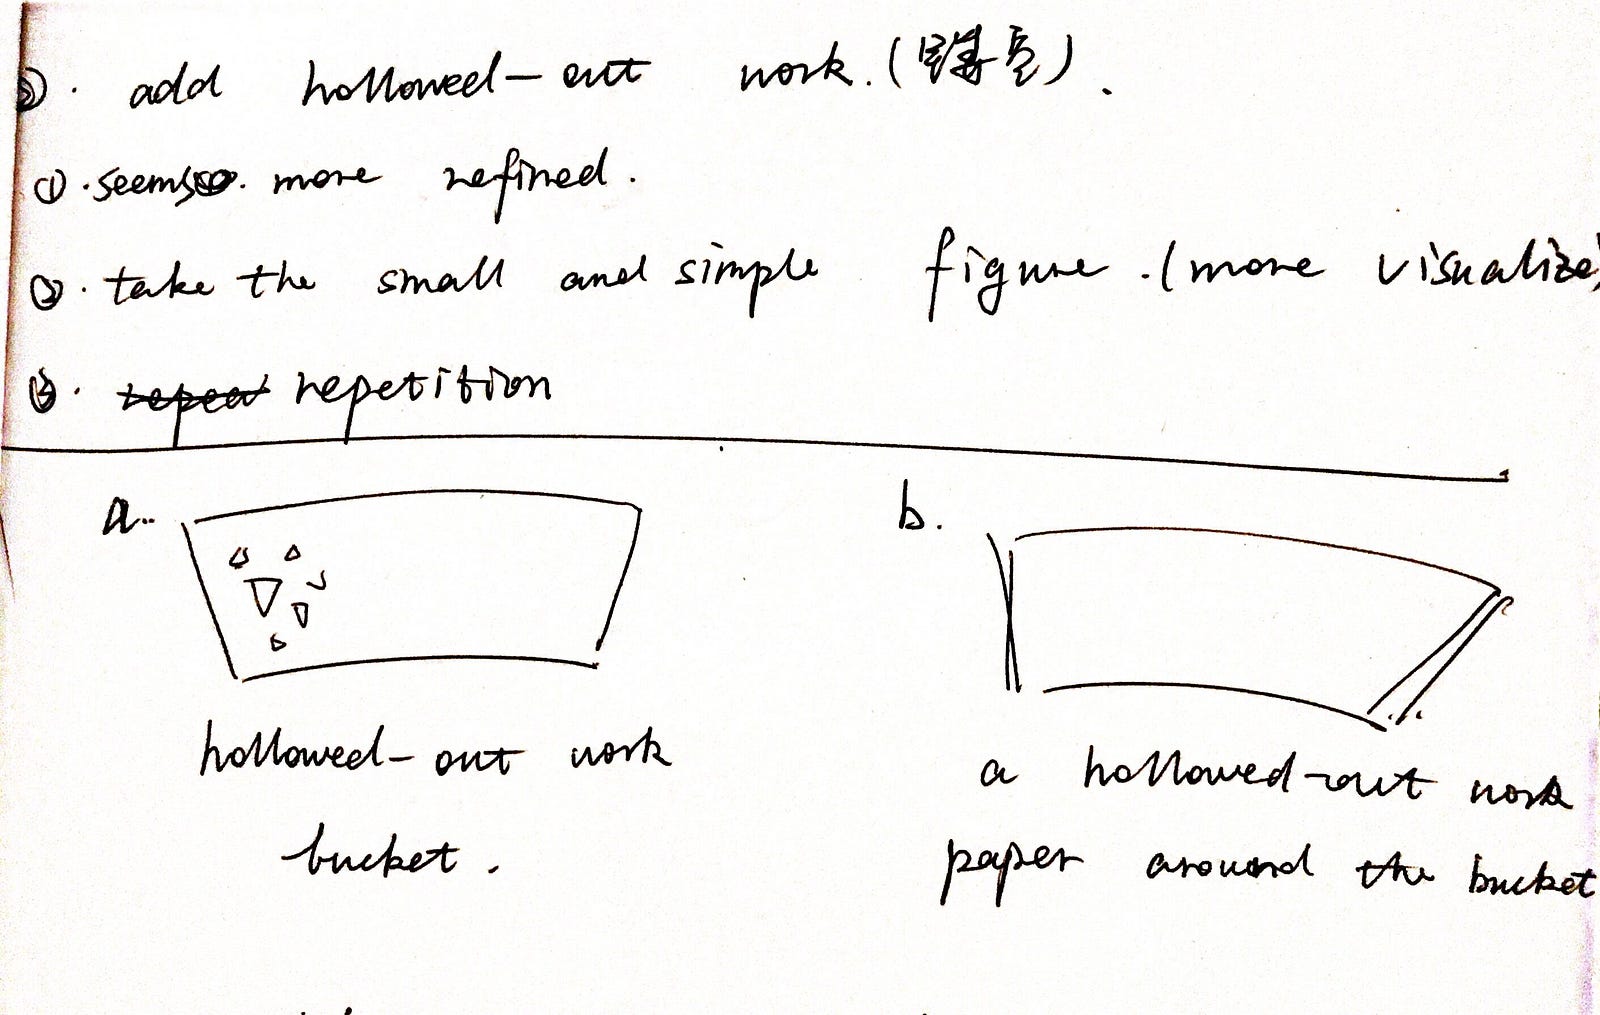 ③. add hollowed-out work. (镂空).
①. seems more refined.
②. take the small and simple figure. (more visualize)
③. repeat repetition
a.
b.
hollowed-out work
bucket.
a hollowed-out work
paper around the bucket